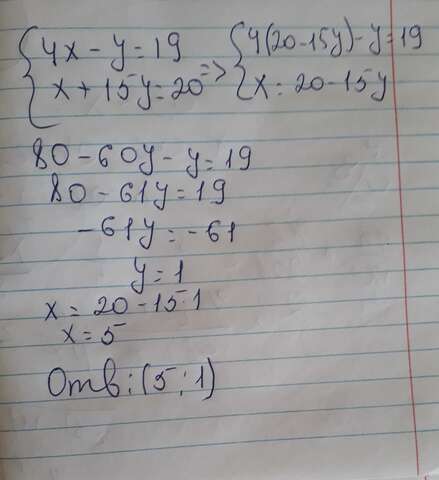 {4x - y = 19 => {4(20-15y)-y=19
x + 15y = 20 x = 20-15y
80-60y-y=19
80-61y=19
-61y=-61
y=1
x=20-15·1
x=5
Отв:(5;1)